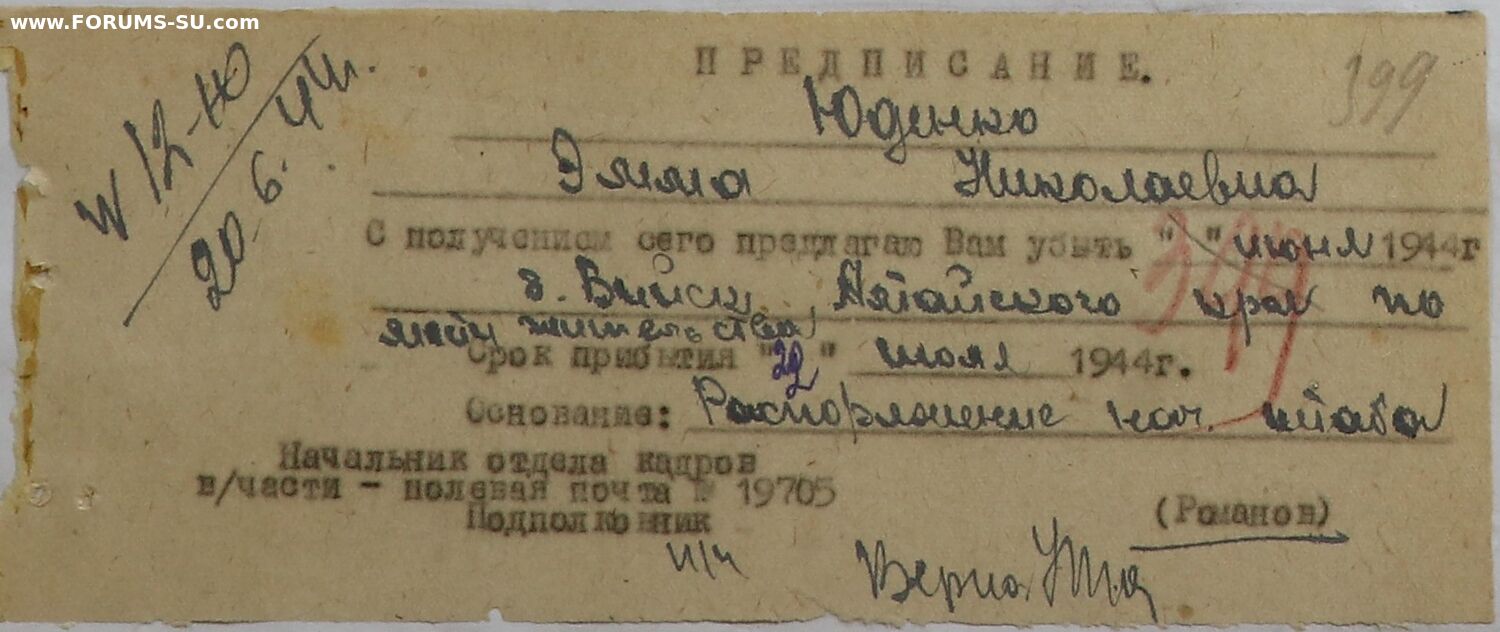 www.FORUMS-SU.com
ПРЕДПИСАНИЕ.
399
N 12-Ю
20.6.44г.
Юденко
Эмма Николаевна
С получением сего предлагаю Вам убыть " " июня 1944г
г. Бийск, Алтайского края по
жительства
Срок прибытия "22" июля 1944г.
Основание: Распоряжение нач. штаба
Начальник отдела кадров
в/части - полевая почта № 19705
Подполковник
(Романов)
п/п
Верно